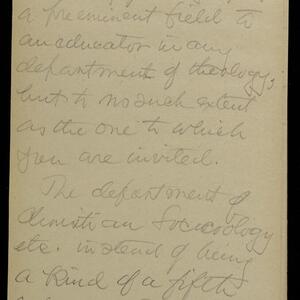 a preeminent field to
an educator in any
department of theology,
but to no such extent
as the one to which
you are invited.
The department of
Christian Sociology
etc. instead of being
a kind of a fifth